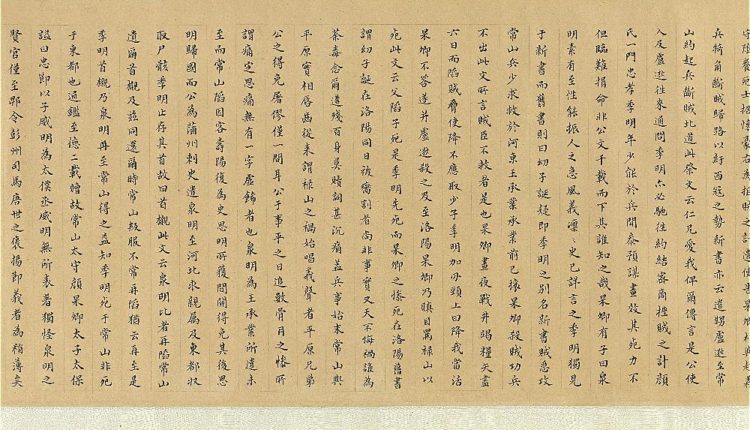 兵犄角斷賊歸路以紓西寇之勢新書亦云遣甥盧逖至常
山約起兵斷賊北道此祭文云仁兄愛我俾爾傳言是公使
人及盧逖往來通問季明亦必馳往約結審商挫賊之計顏
氏一門忠孝季明年少能於兵間參預謀畫效其死力不
但臨難捐命非公文千載而下其誰知之哉杲卿有子曰泉
明素有至性能振人之急風義凜凜史已詳言之季明獨見
于新書而舊書則曰幼子誕疑即季明之別名新書賊急攻
常山兵少求救於河東王承業承業前已攘杲卿殺賊功兵
不出此文所言賊臣不救者是也杲卿晝夜戰井竭糧矢盡
六日而陷賊脅使降不應取少子季明加刃頸上曰降我當活
杲卿不答遂并盧逖殺之及至洛陽杲卿乃瞋目罵祿山以
死此文云父陷子死是季明先死而杲卿之慘死在洛陽舊書
謂幼子誕在洛陽同日被割者尚非事實又天不悔禍誰為
荼毒念爾遘殘百身莫贖詞甚沉痛蓋兵事始末常山與
平原實相唇齒從來謂祿山之禍始唱義聲者平原兄弟
公之得免屠僇僅一間耳公于事平之日追數骨肉之慘所
謂痛定思痛無有一字虛飾者也泉明為王承業所遣未
至而常山陷因客壽陽復為史思明所獲間關得免其後思
明歸國而公為蒲州刺史遣泉明至河北求親屬及東都收
取尸骸季明止存其首故曰首櫬此文云泉明比者再陷常山
遺爾首櫬及茲同還爾時常山級服不常再陷猶云再至是
季明首櫬乃泉明再至常山得之益知季明死于常山非死
于東都也通鑑至德二載贈故常山太守顏杲卿太子太保
謚曰忠節以子威明為太僕丞威明無所表著獨怪泉明之
賢官僅至郫令彭州司馬唐世之褒揚節義者為稍薄矣